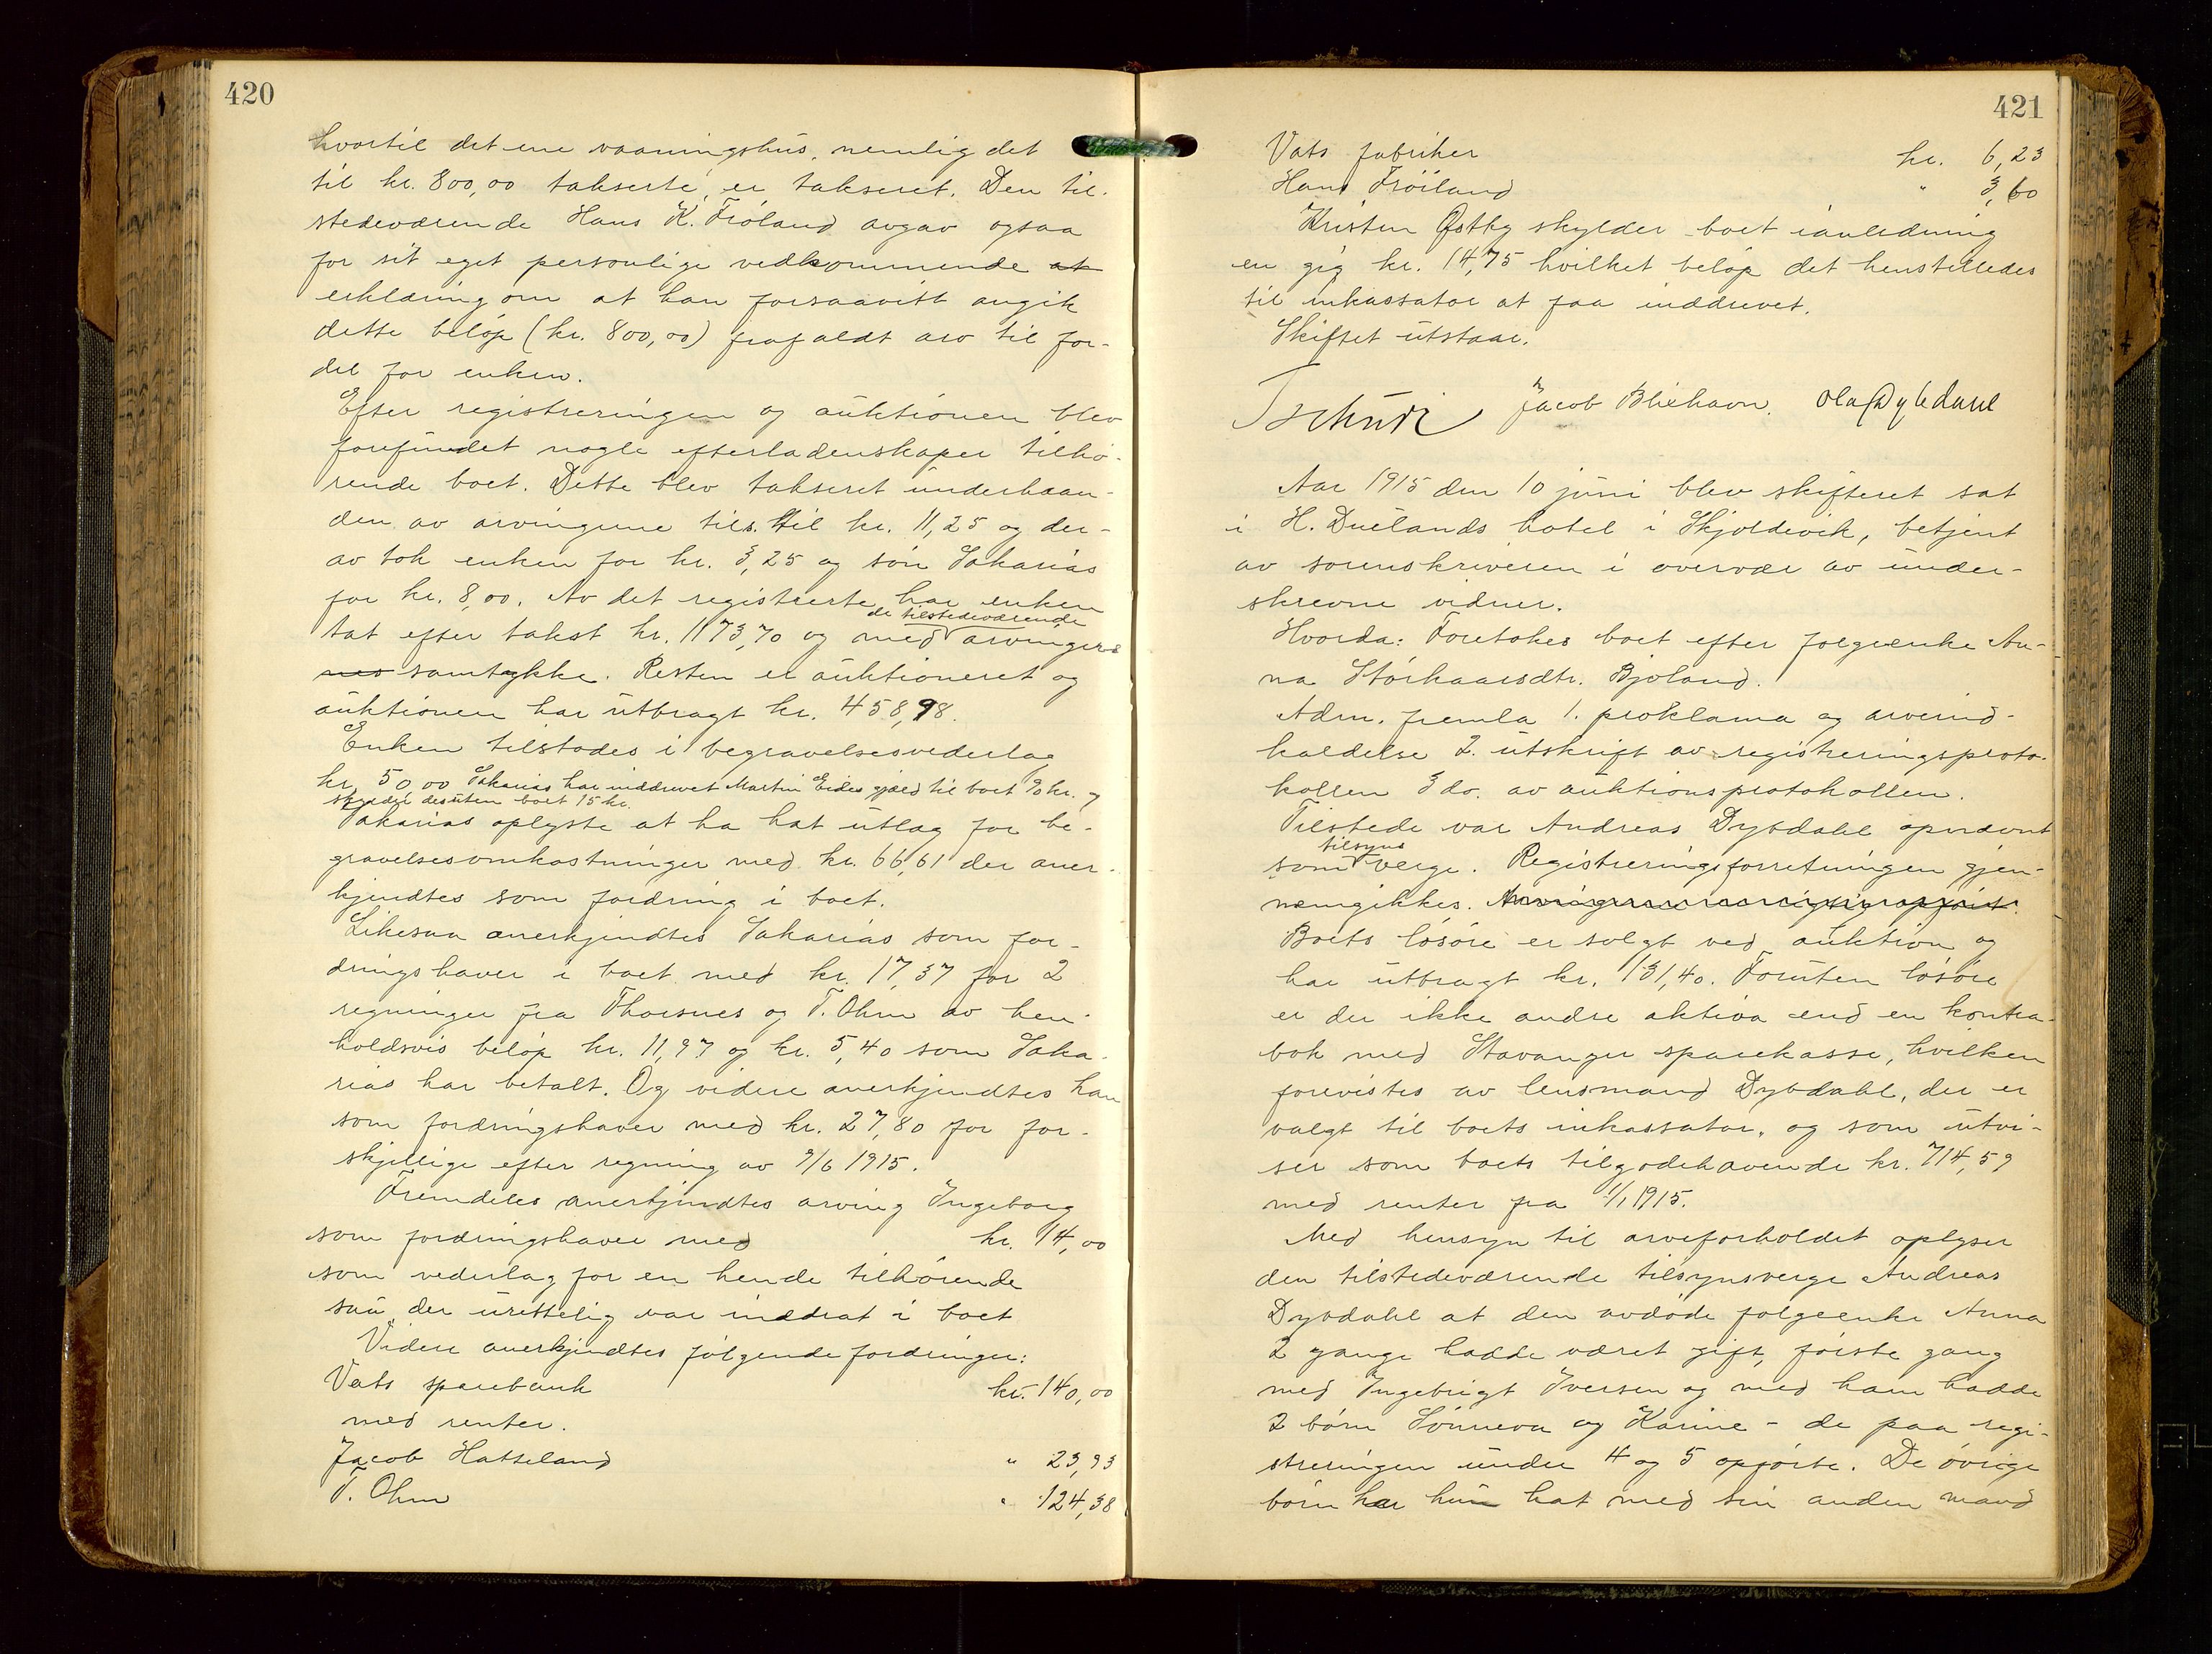 420
hvortil det ene vaaningshus, nemlig det
til kr. 800,00 takserte, er takseret. Den til-
stedeværende Hans K. Fröland avgav ogsaa
for sit eget personlige vedkommende at
erklæring om at han forsaavitt angik
dette beløp (kr. 800,00) frafaldt arv til for-
del for enken.
Efter registreringen og auktionen blev
forefundet nogle efterladenskaper tilhö-
rende boet. Dette blev takseret underhaan-
den av arvingerne tils. til kr. 11,25 og der-
av tok enken for kr. 3,25 og sön Sakarias
for kr. 8,00. Av det registrerte har enken
de tilstedeværende
tat efter takst kr. 1173,70 og med arvingers
nes samtykke. Resten er auktioneret og
auktionen har utbragt kr. 458,98.
Enken tilstodes i begravelsesvederlag
kr. 50,00 Sakarias har inddrevet Martin Eides gjæld til boet 90 kr. og
skylder desuten boet 15 kr.
Sakarias oplyste at ha hat utlæg for be-
gravelsesomkostninger med kr. 66,61 der aner-
kjendtes som fordring i boet.
Likesaa anerkjendtes Sakarias som for-
dringshaver i boet med kr. 17,37 for 2
regninger fra Thorsnes og T. Ohm av hen-
holdsvis beløp kr. 11,97 og kr. 5,40 som Saka-
rias har betalt. Og videre anerkjendtes han
som fordringshaver med kr. 27,80 for for-
skjellige efter regning av 9/6 1915.
Fremdeles anerkjendtes arving Ingeborg
som fordringshaver med kr. 14,00
som vederlag for en hende tilhörende
sau der urettelig var inddrat i boet
Videre anerkjendtes fölgende fordringer:
Vats sparebank kr. 140,00
med renter.
Jacob Hatteland " 23,93
T. Ohm " 124,38
421
Vats fabriker kr. 6,23
Hans Fröiland " 3,60
Kristen Østby skylder boet ianledning
en gig kr. 14,75 hvilket beløp det henstilledes
til inkassator at faa inddrevet.
Skiftet utstaar.
Tschudi Jacob Blixhavn. Ola Dybdahl
Aar 1915 den 10 juni blev skifteret sat
i H. Duelands hotel i Skjoldevik, betjent
av sorenskriveren i overvær av under-
skrevne vidner.
Hvorda: Foretokes boet efter folgeenke An-
na Storkaarsdtr. Bjoland.
Adm. fremla 1. proklama og arveind-
kaldelse 2. utskrift av registreringsproto-
kollen 3 do. av auktionsprotokollen.
Tilstede var Andreas Dybdahl opnævnt
tilsyns
som verge. Registreringsforretningen gjen-
nemgikkes. Arvingerne
Boets lösöre er solgt ved auktion og
har utbragt kr. 131,40. Foruten lösöre
er der ikke andre aktiva end en kontra-
bok med Stavanger sparekasse, hvilken
forevistes av lensmand Dybdahl, der er
valgt til boets inkassator, og som utvi-
ser som boets tilgodehavende kr. 714,59
med renter fra 1/1 1915.
Med hensyn til arveforholdet oplyser
den tilstedeværende tilsynsverge Andreas
Dybdahl at den avdöde folgeenke Anna
2 gange hadde været gift, förste gang
med Ingebrigt Iversen og med ham hadde
2 börn Sönneva og Karine - de paa regi-
streringen under 4 og 5 opförte. De övrige
börn har hun hat med sin anden mand